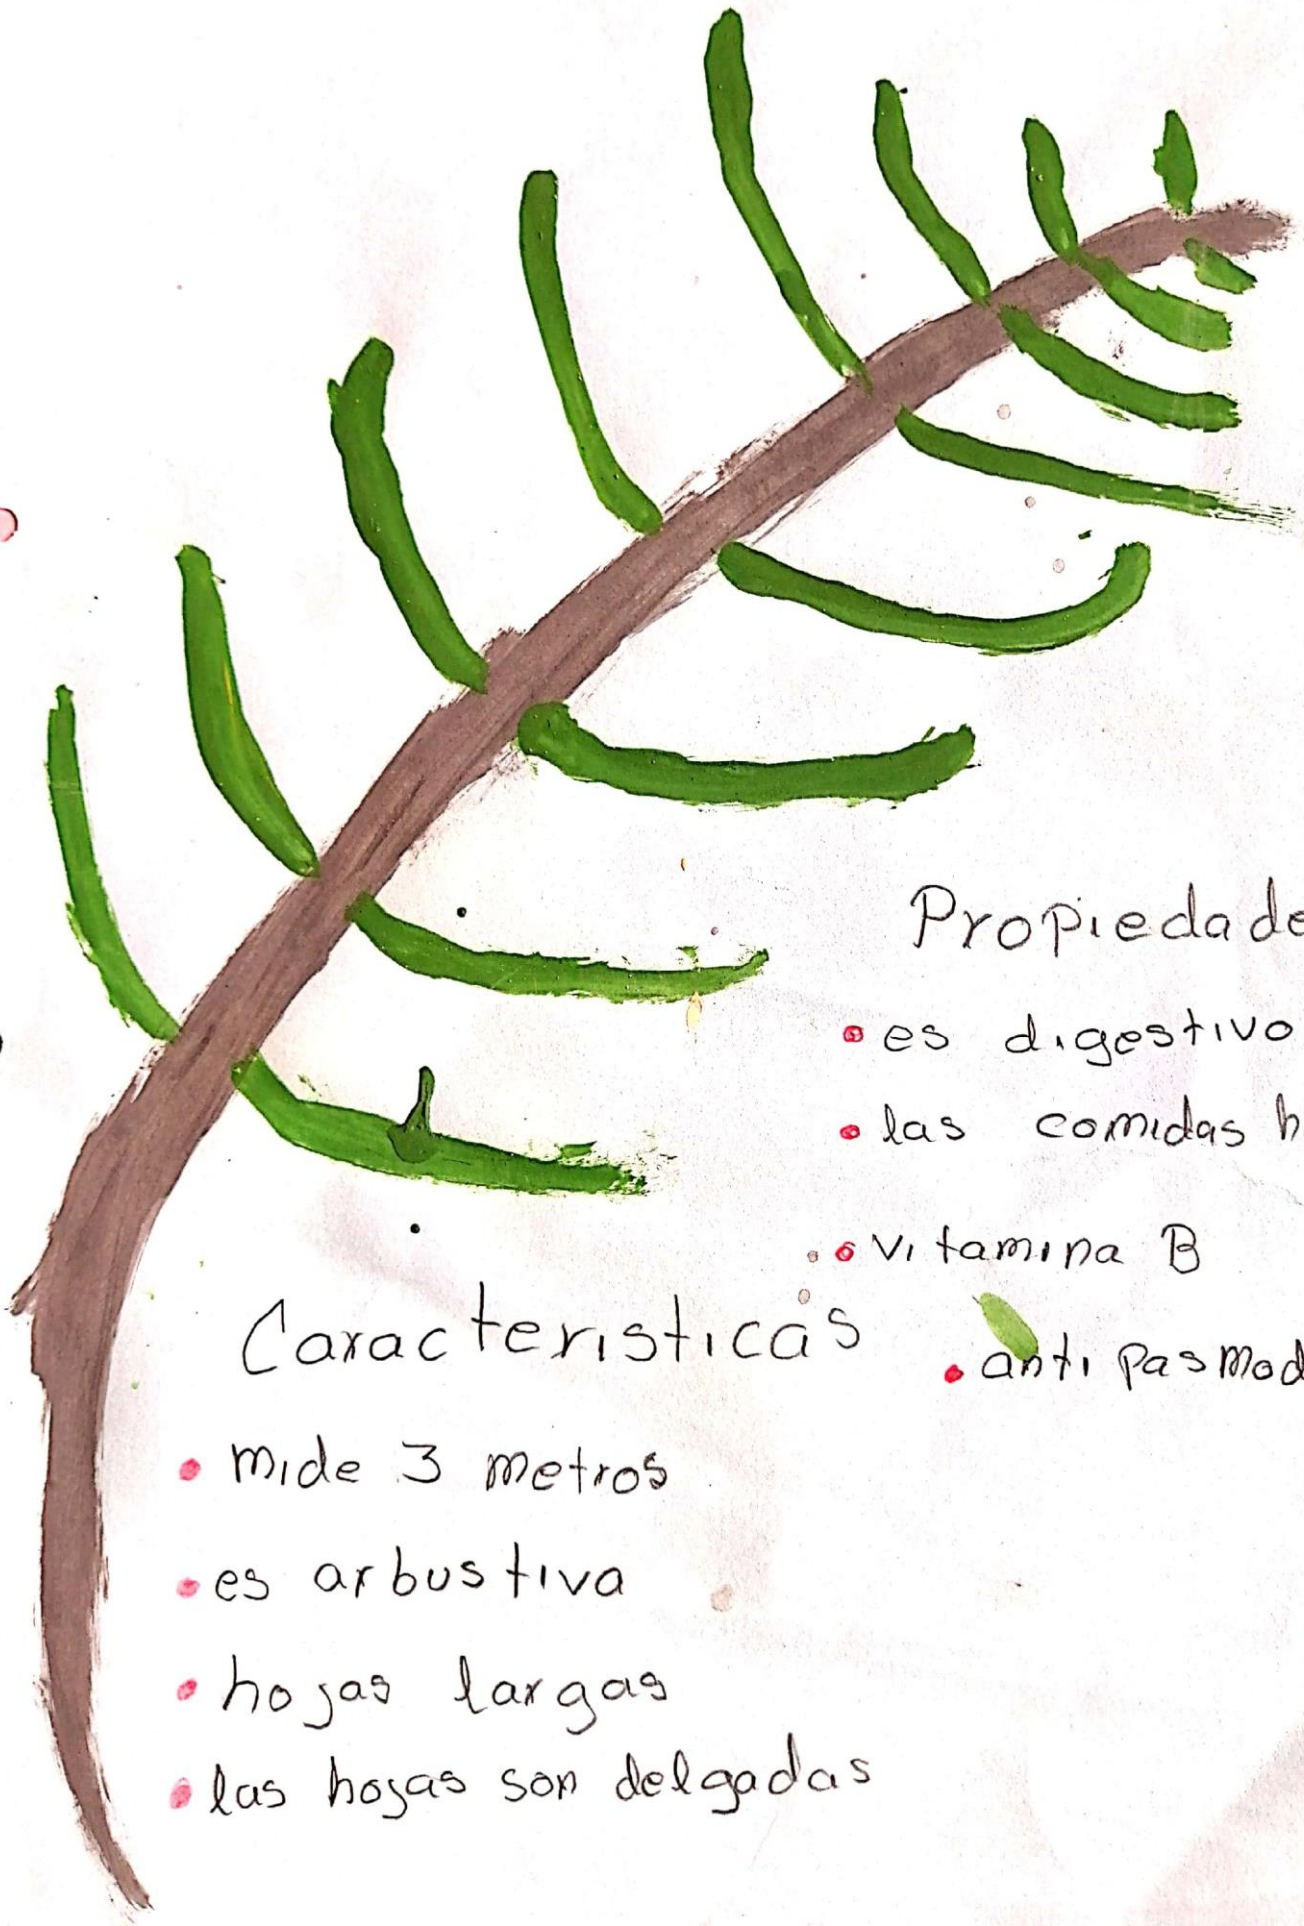 Propiedade
es digestivo
las comidas h
vitamina B
antipasmod
Caracteristicas
mide 3 metros
es arbustiva
hojas largas
las hojas son delgadas